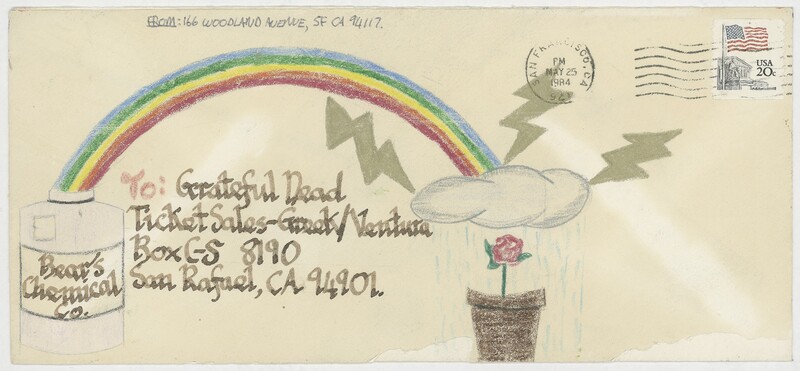 FROM: 166 WOODLAND AVENUE, SF CA 94117.
SAN FRANCISCO, CA
PM
MAY 25
1984
941
USA
20c
To: Grateful Dead
Ticket Sales-Greek/Ventura
Box C-S 8190
San Rafael, CA 94901.
Bear's
Chemical
Co.